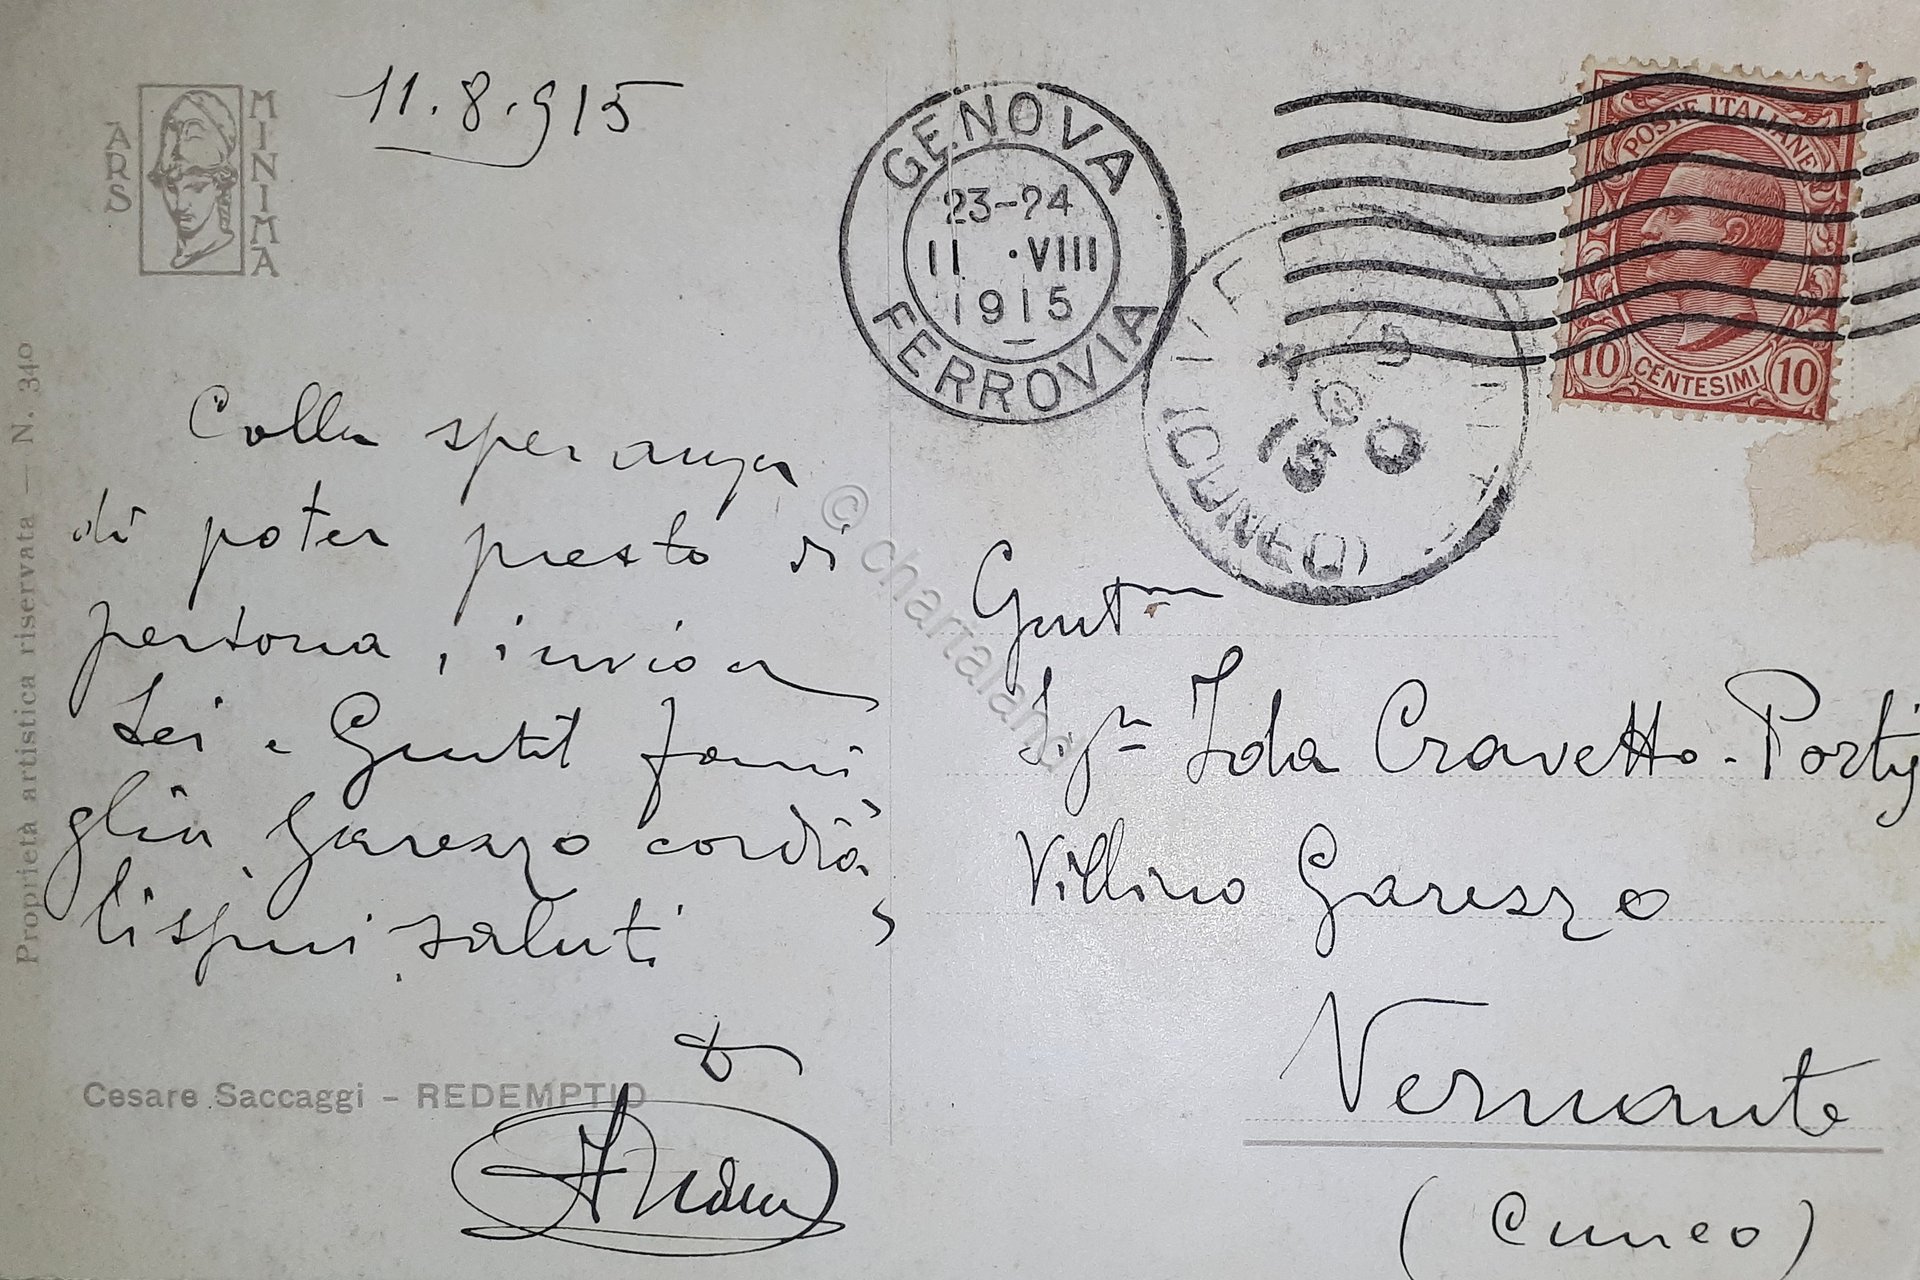 ARS
MINIMA
11.8.915
GENOVA
23-24
11 ·VIII
1915
FERROVIA
POSTE ITALIANE
10 CENTESIMI 10
(CUNEO)
Proprietà artistica riservata — N. 340
Colla speranza
di poter presto di
persona, invio a
Lei e Gentil fami
glia Garezzo cordia
lissimi saluti
Cesare Saccaggi - REDEMPTIO
Gent.ma
Sig.ra Ida Cravetto-Portij
Villino Garezzo
Vernante
(Cuneo)
© chartaland